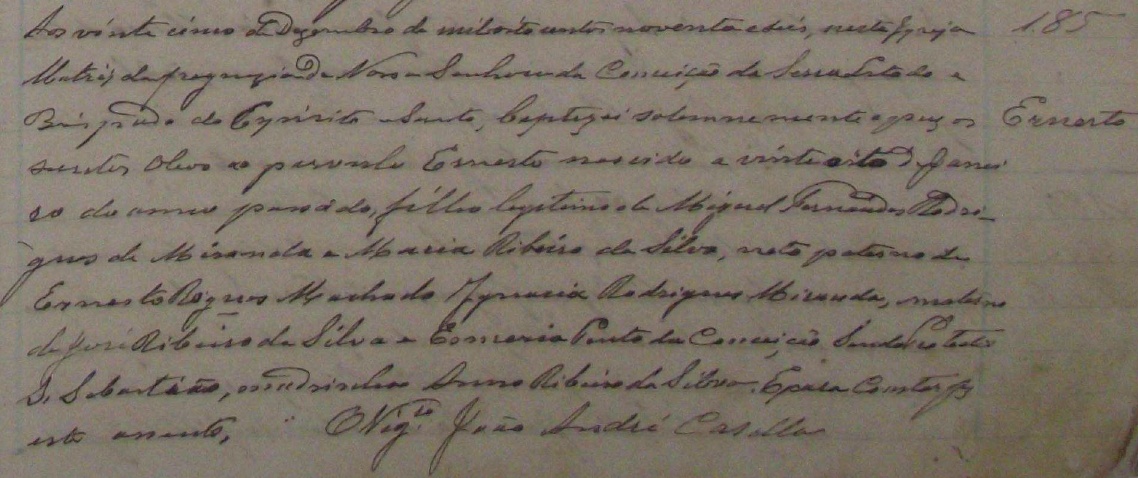 Aos vinte cinco de Dezembro de mil oito centos noventa e seis, nesta Igreja
185
Matriz da freguezia de Nossa Senhora da Conceição da Serra Estado e
Bispado do Espirito Santo, baptizei solemnemente e puz os
Ernesto
santos Oleos ao parvulo Ernesto nascido a vinte oito de Janei
ro do anno passado, filho legitimo de Miguel Fernandes Rodri-
gues de Miranda e Maria Ribeiro da Silva, neto paterno de
Ernesto Rogues Machado Ignacia Rodrigues Miranda, materno
de José Ribeiro da Silva e Esmeria Pinto da Conceição Sendo Protector
S. Sebastião, madrinha Anna Ribeiro da Silva. E para Constar fiz
este assento,
O Vigro João André Casella